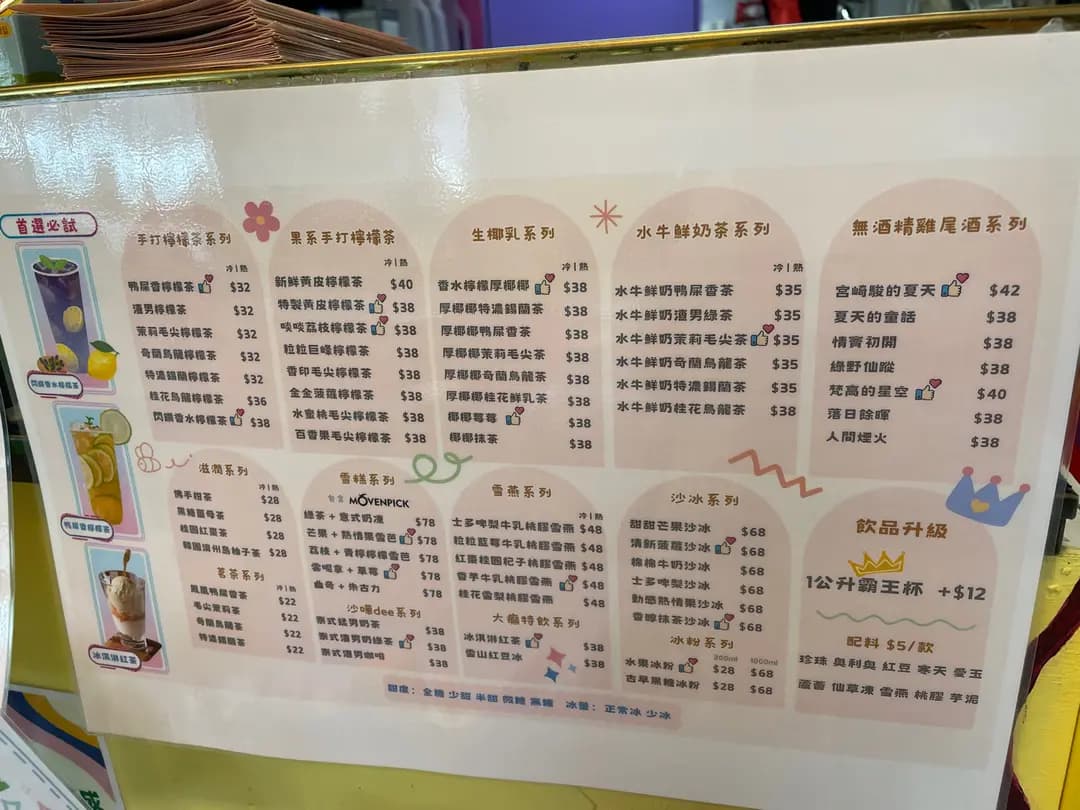 首選必試
閃鑽香水檸檬茶
鴨屎香檸檬茶
冰淇淋紅茶
手打檸檬茶系列
冷|熱
鴨屎香檸檬茶 $32
渣男檸檬茶 $32
茉莉毛尖檸檬茶 $32
奇蘭烏龍檸檬茶 $32
特濃錫蘭檸檬茶 $32
桂花烏龍檸檬茶 $36
閃鑽香水檸檬茶 $38
果系手打檸檬茶
冷|熱
新鮮黃皮檸檬茶 $40
特製黃皮檸檬茶 $38
啖啖荔枝檸檬茶 $38
粒粒巨峰檸檬茶 $38
香印毛尖檸檬茶 $38
金金菠蘿檸檬茶 $38
水蜜桃毛尖檸檬茶 $38
百香果毛尖檸檬茶 $38
生椰乳系列
冷|熱
香水檸檬厚椰椰 $38
厚椰椰特濃錫蘭茶 $38
厚椰椰鴨屎香茶 $38
厚椰椰茉莉毛尖茶 $38
厚椰椰奇蘭烏龍茶 $38
厚椰椰桂花鮮乳茶 $38
椰椰莓莓 $38
椰椰抹茶 $38
水牛鮮奶茶系列
冷|熱
水牛鮮奶鴨屎香茶 $35
水牛鮮奶渣男綠茶 $35
水牛鮮奶茉莉毛尖茶 $35
水牛鮮奶奇蘭烏龍茶 $35
水牛鮮奶特濃錫蘭茶 $35
水牛鮮奶桂花烏龍茶 $38
無酒精雞尾酒系列
宮崎駿的夏天 $42
夏天的童話 $38
情竇初開 $38
綠野仙蹤 $38
梵高的星空 $40
落日餘暉 $38
人間煙火 $38
滋潤系列
冷|熱
佛手柑茶 $28
黑糖薑母茶 $28
桂圓紅棗茶 $28
韓國濟州島柚子茶 $28
茗茶系列
冷|熱
鳳凰鴨屎香茶 $22
毛尖茉莉茶 $22
奇蘭烏龍茶 $22
特濃錫蘭茶 $22
雪糕系列
包含 MÖVENPICK
綠茶 + 意式奶凍 $78
芒果 + 熱情果雪芭 $78
荔枝 + 青檸檸檬雪芭 $78
雲呢拿 + 草莓 $78
曲奇 + 朱古力 $78
沙嗲dee系列
泰式猛男奶茶 $38
泰式渣男奶綠茶 $38
泰式渣男咖啡 $38
雪燕系列
冷|熱
士多啤梨牛乳桃膠雪燕 $48
粒粒藍莓牛乳桃膠雪燕 $48
紅棗桂圓杞子桃膠雪燕 $48
香芋牛乳桃膠雪燕 $48
桂花雪梨桃膠雪燕 $48
大癲特飲系列
冰淇淋紅茶 $38
雪山紅豆冰 $38
沙冰系列
甜甜芒果沙冰 $68
清新菠蘿沙冰 $68
綿綿牛奶沙冰 $68
士多啤梨沙冰 $68
動感熱情果沙冰 $68
香醇抹茶沙冰 $68
冰粉系列
300ml 1000ml
水果冰粉 $28 $68
古早黑糖冰粉 $28 $68
飲品升級
1公升霸王杯 +$12
配料 $5/款
珍珠 奧利奧 紅豆 寒天 愛玉
蘆薈 仙草凍 雪燕 桃膠 芋泥
甜度: 全糖 少甜 半甜 微糖 無糖 冰量: 正常冰 少冰